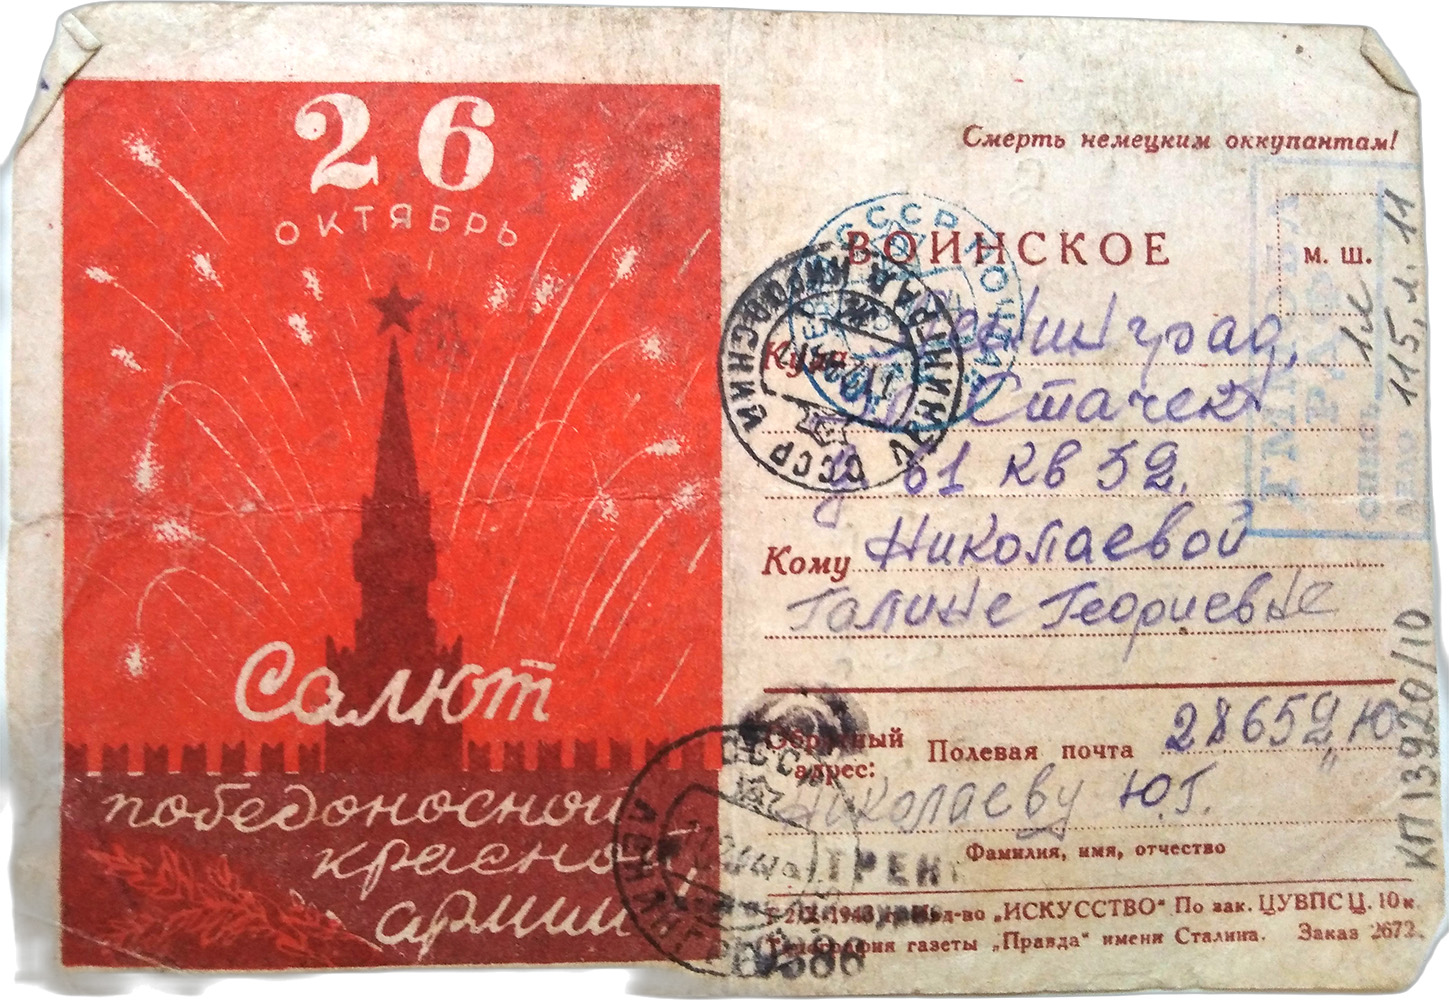 26
ОКТЯБРЬ
Салют
победоносной
красной
армии
Смерть немецким оккупантам!
ВОИНСКОЕ
м. ш.
Куда Ленинград,
Стачек
д 61 кв 52.
Кому Николаевой
Галине Георгиевне
Обратный адрес: Полевая почта 28652 „Ю"
Николаеву Ю.Г.
Фамилия, имя, отчество
1943 Изд-во „ИСКУССТВО" По зак. ЦУВПС Ц. 10 к.
Типография газеты „Правда" имени Сталина. Заказ 2672.
СССР
ЛЕНИНГРАД
СССР
КП 13920/10
115, л. 11
ОПИСЬ
ДЕЛО